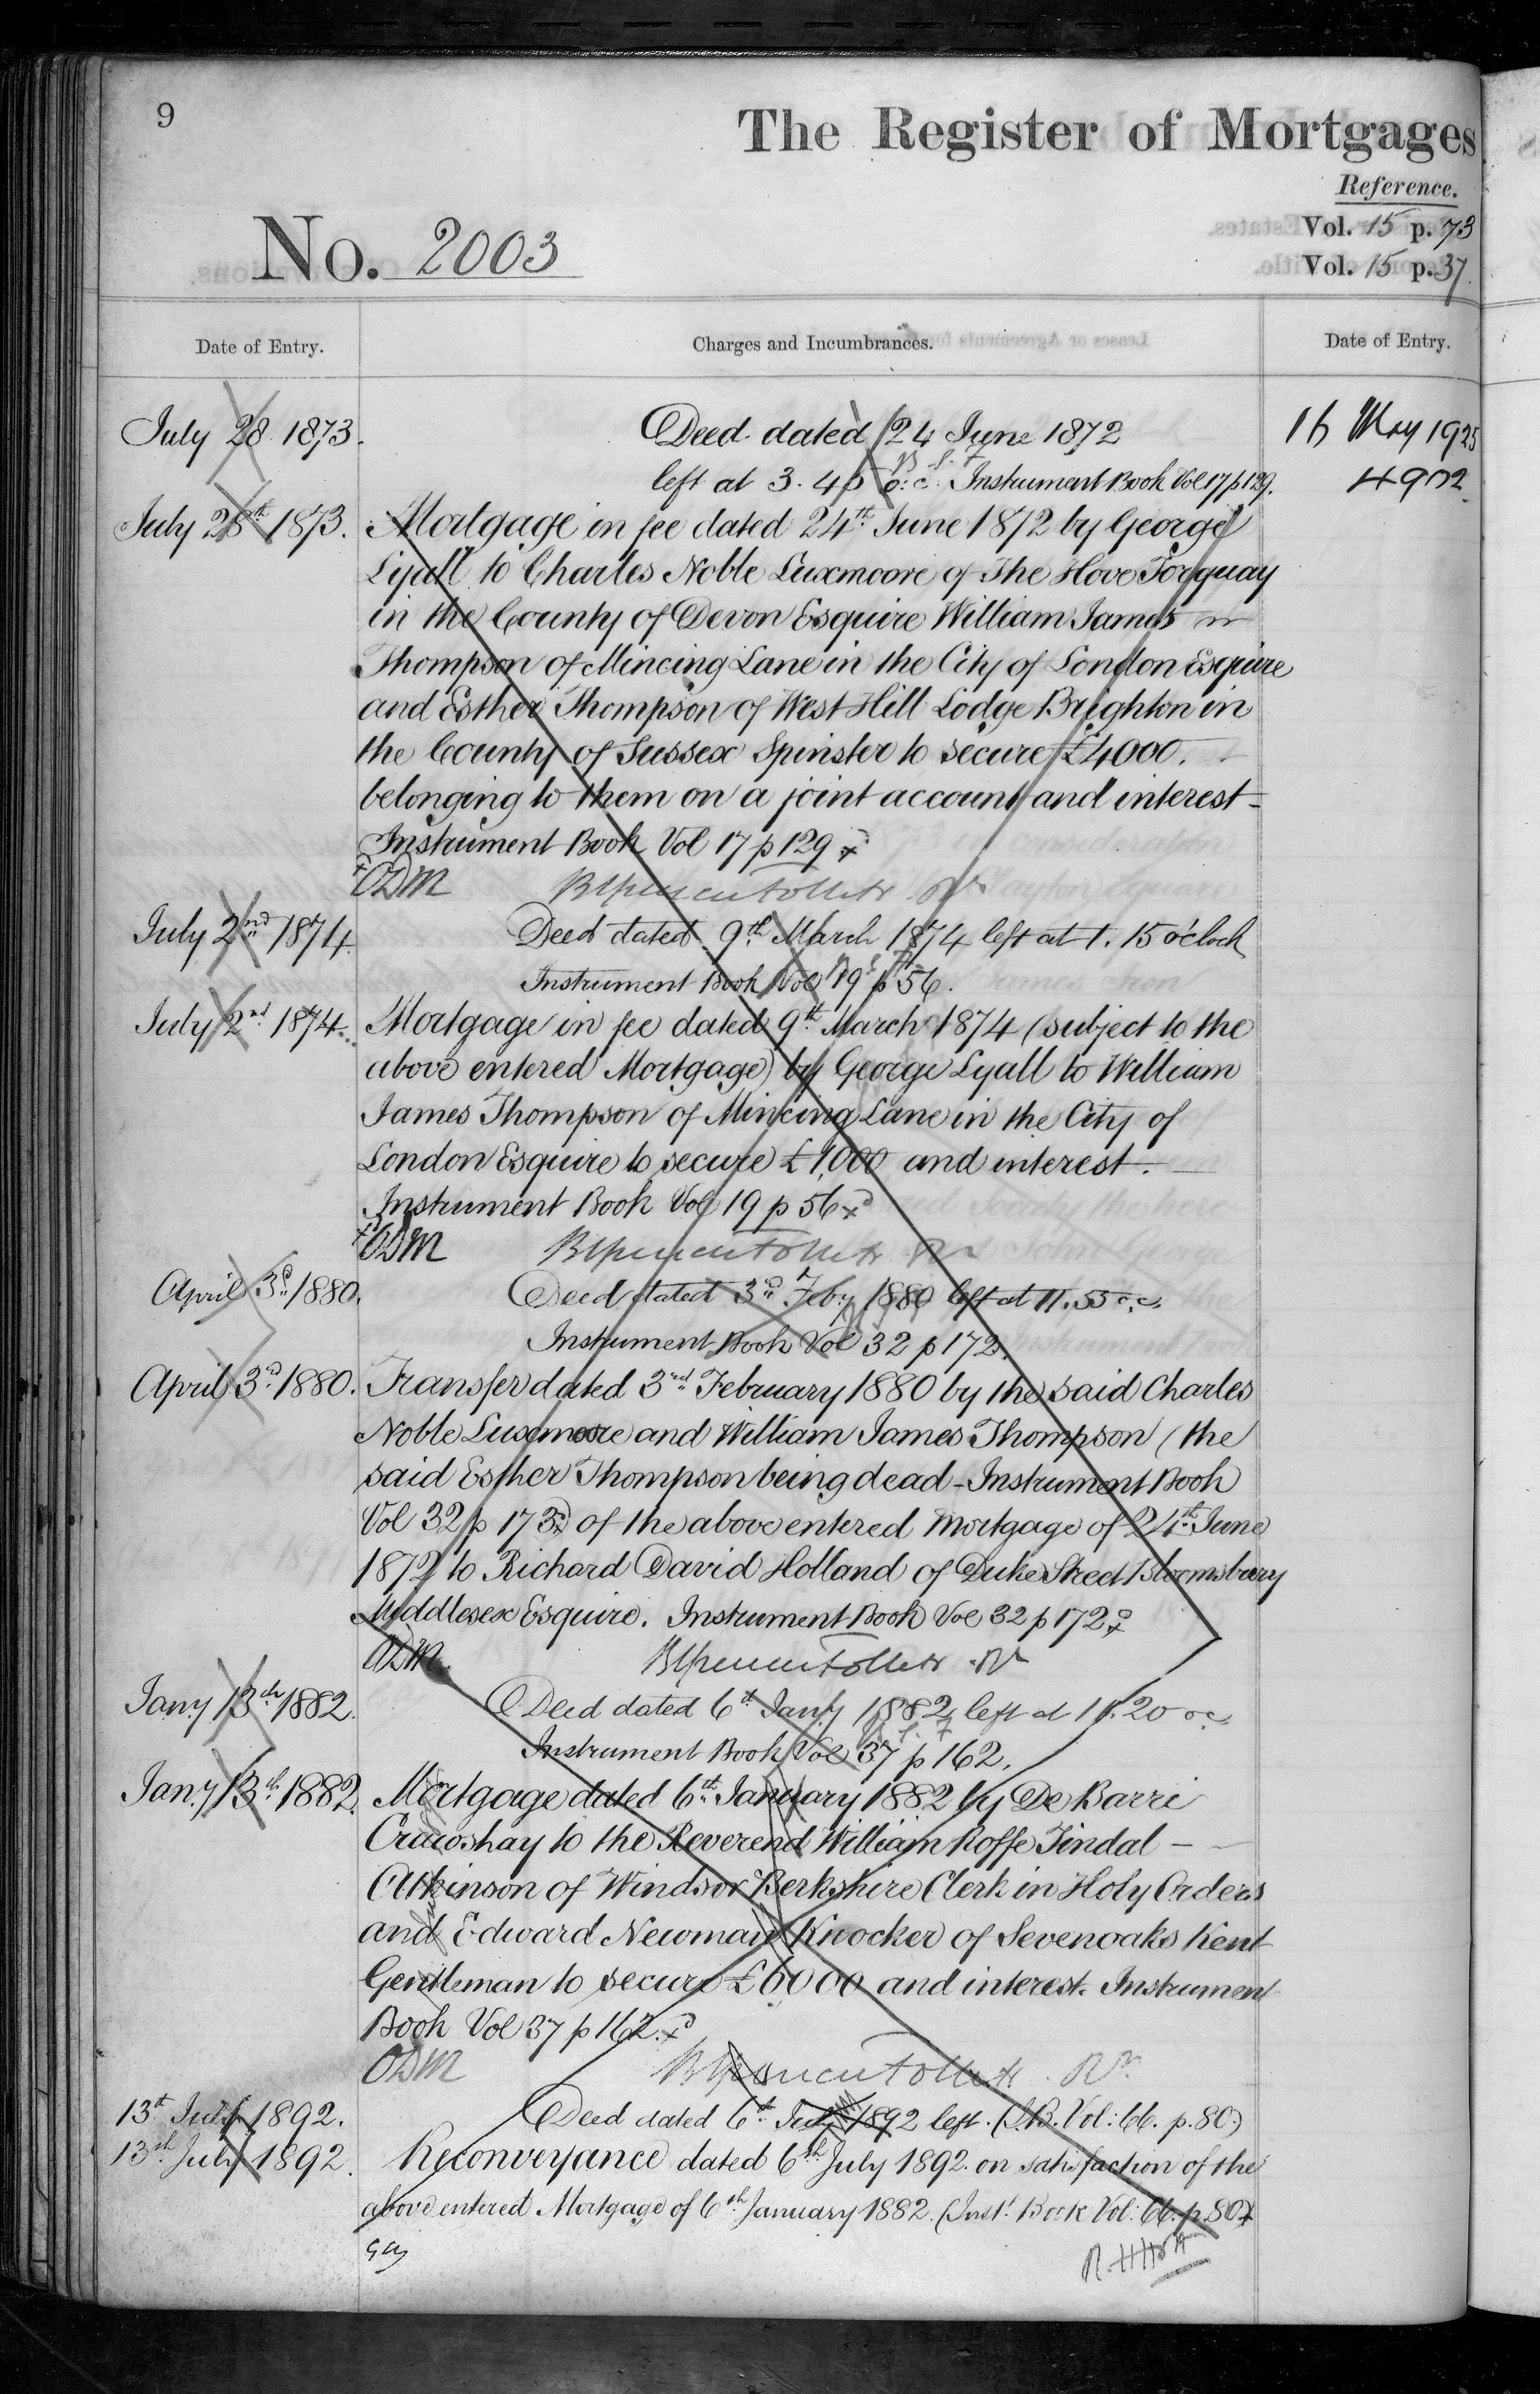 9
The Register of Mortgages
Reference.
Vol. 15 p. 73
No. 2003
Vol. 15 p. 37
Date of Entry.
Charges and Incumbrances.
Date of Entry.
July 28 1873.
Deed dated 24 June 1872
16 May 1925
left at 3. 45 o.c. Instrument Book Vol 17 p 129.
4902
July 28th 1873.
Mortgage in fee dated 24th June 1872 by George
Lyall to Charles Noble Luxmoore of The Hove Torquay
in the County of Devon Esquire William James
Thompson of Mincing Lane in the City of London Esquire
and Esther Thompson of West Hill Lodge Brighton in
the County of Sussex Spinster to secure £4000.
belonging to them on a joint account and interest -
Instrument Book Vol 17 p 129
ODM
July 2nd 1874
Deed dated 9th March 1874 left at 1. 15 o'clock
Instrument Book Vol 19 p 56.
July 2nd 1874.
Mortgage in fee dated 9th March 1874 (subject to the
above entered Mortgage) by George Lyall to William
James Thompson of Mincing Lane in the City of
London Esquire to secure £1,000 and interest.
Instrument Book Vol 19 p 56
ODM
April 3d 1880.
Deed dated 3rd Feby 1880 left at 11.55 o.c.
Instrument Book Vol 32 p 172.
April 3rd 1880.
Transfer dated 3rd February 1880 by the said Charles
Noble Luxmoore and William James Thompson (the
said Esther Thompson being dead - Instrument Book
Vol 32 p 173) of the above entered Mortgage of 24th June
1872 to Richard David Holland of Duke Street Bloomsbury
Middlesex Esquire. Instrument Book Vol 32 p 172
ODM.
Jany 13th 1882.
Deed dated 6th Jany 1882 left at 11.20 oc.
Instrument Book Vol 37 p 162.
Jany 13th 1882.
Mortgage dated 6th January 1882 by De Barri
Crawshay to the Reverend William Roffe Tindal -
Atkinson of Windsor Berkshire Clerk in Holy Orders
and Edward Newman Knocker of Sevenoaks Kent
Gentleman to secure £6000 and interest. Instrument
Book Vol 37 p 162.
ODM
13th July 1892.
Deed dated 6th July 1892 left. (I.B. Vol: 66. p. 80.)
13th July 1892.
Reconveyance dated 6th July 1892. on satisfaction of the
above entered Mortgage of 6th January 1882. (Inst. Book Vol: 66. p. 80